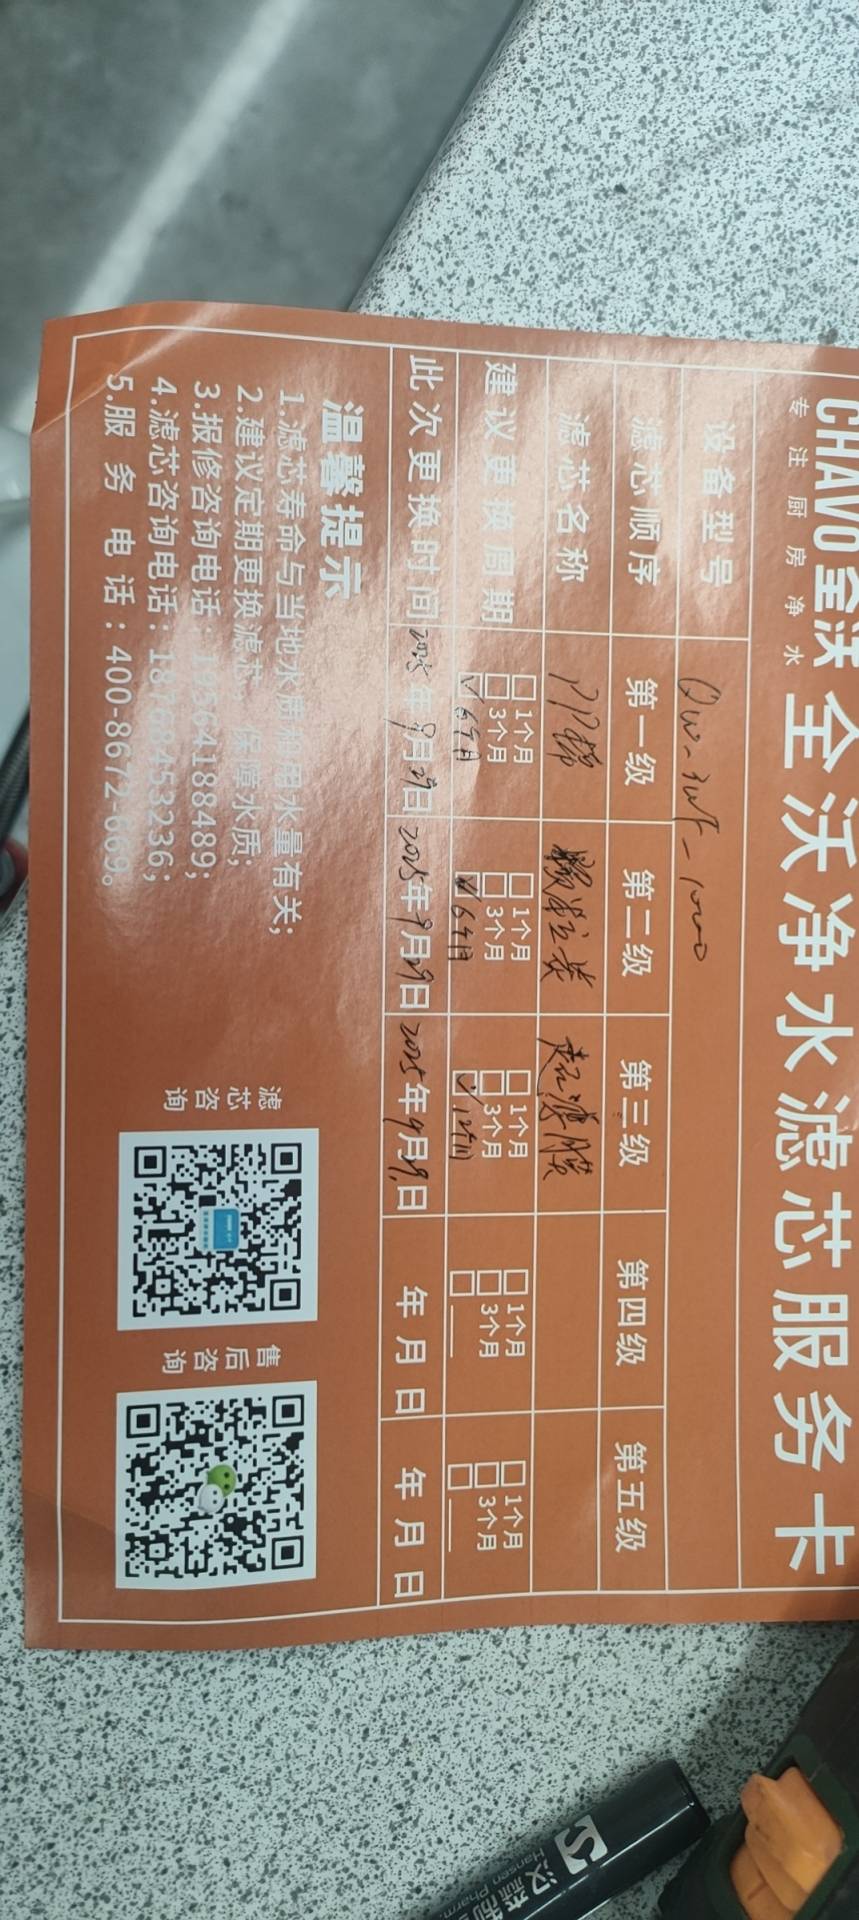 CHAVO全沃 全沃净水滤芯服务卡
专注厨房净水
设备型号
滤芯顺序 第一级 第二级 第三级 第四级 第五级
滤芯名称 PP棉 颗粒炭
建议更换周期 □1个月 □1个月 □1个月 □1个月 □1个月
□3个月 □3个月 □3个月 □3个月 □3个月
☑6个月 ☑6个月 ☑12个月 □ □
此次更换时间 2025年9月29日 2025年9月29日 2025年9月29日 年月日 年月日
温馨提示
1.滤芯寿命与当地水质和用水量有关;
2.建议定期更换滤芯, 保障水质;
3.报修咨询电话: 64188489;
4.滤芯咨询电话: 18768453236;
5.服务电话: 400-8672-669。
滤芯咨询
售后咨询
汉森制
Hansen Pharm